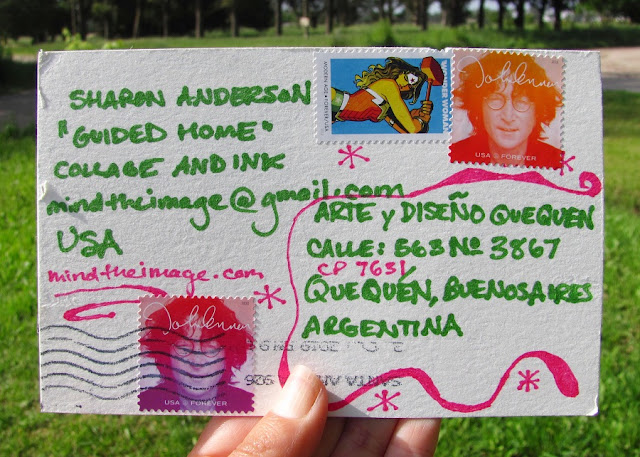 SHARON ANDERSON
"GUIDED HOME"
COLLAGE AND INK
mindtheimage@gmail.com
USA
mindtheimage.com
WONDER WOMAN
John Lennon
USA FOREVER
ARTE y DISEÑO QUEQUEN
CALLE: 563 Nº 3867
CP 7631
QUEQUÉN, BUENOS AIRES
ARGENTINA
John Lennon
USA FOREVER
SANTA
926
2019 PM